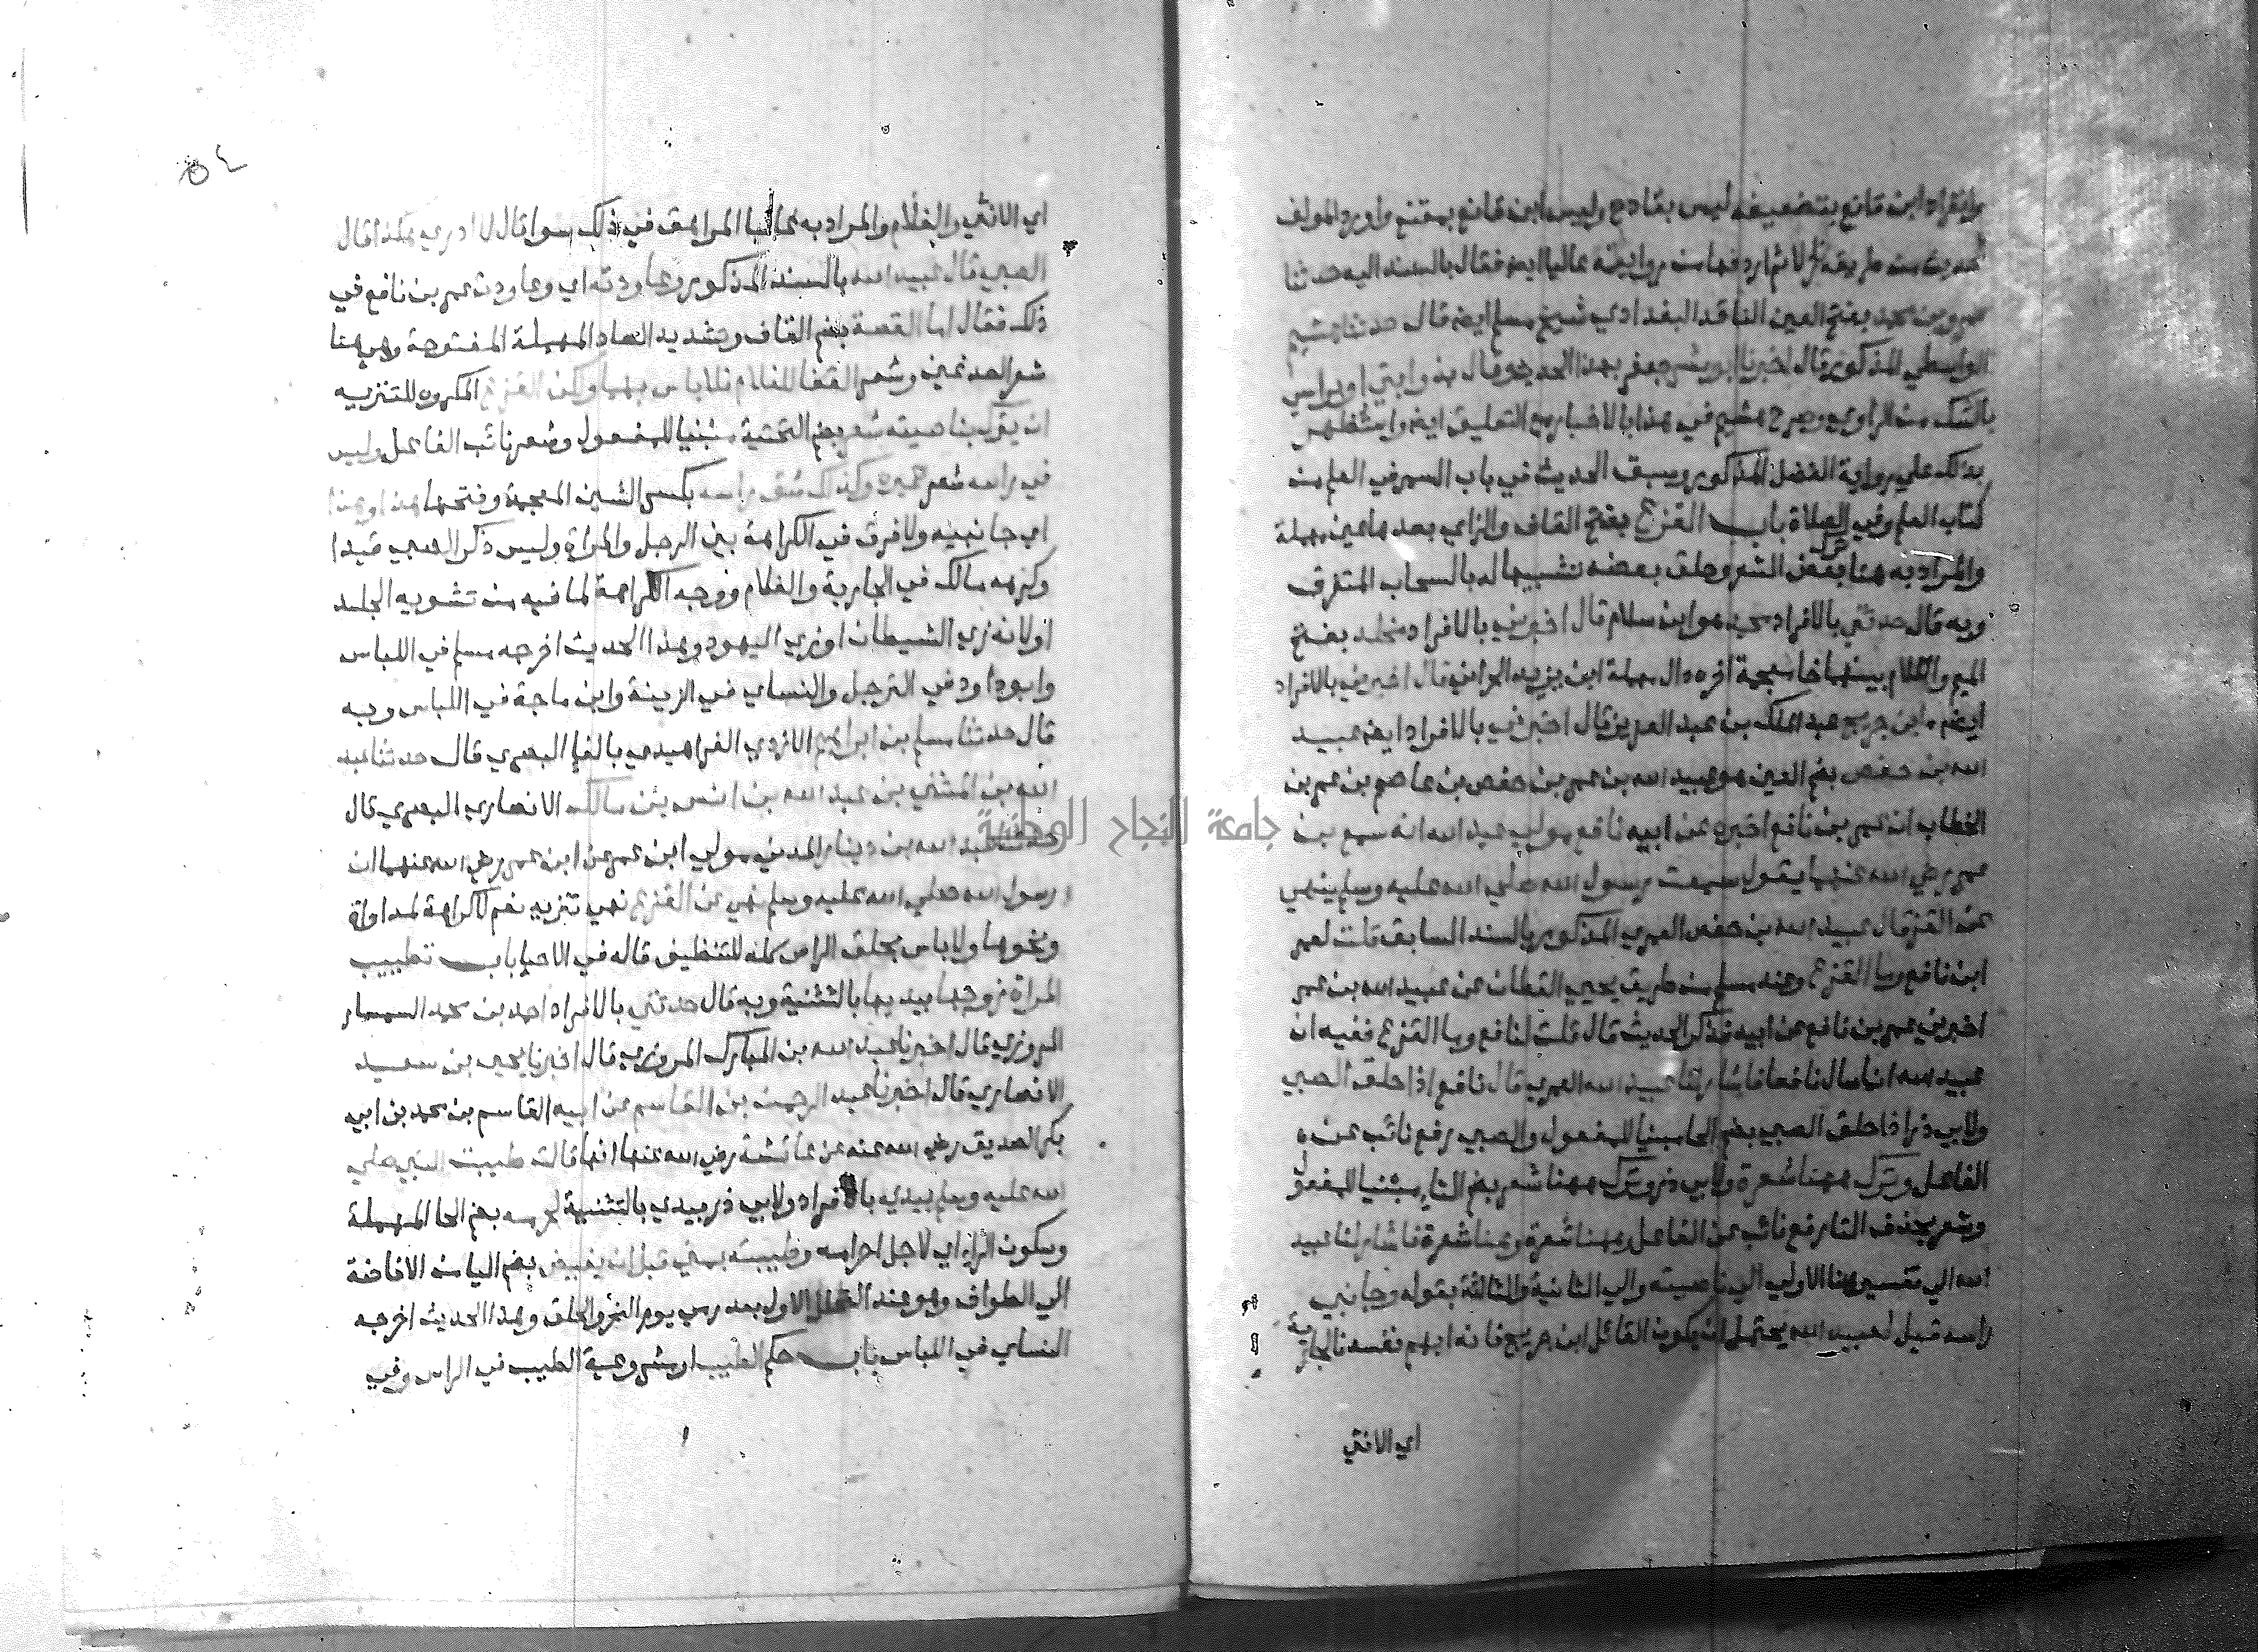 وانفراد ابن قانع بتضعيفه ليس بقادح وليس ابن قانع بمقنع واورد المولف
الحديث من طريقه لا ثم اردفها من روايته عاليا ايضا فقال بالسند اليه حدثنا
عمرو بن محمد بفتح العين الناقد البغدادي شيخ مسلم ايضا قال حدثنا هشيم
الواسطي المذكور قال اخبرنا ابو بشر جعفر بهذا الحديث وقال بذوابتي او براسي
بالشك من الراوي وصرح هشيم في هذا بالاخبار مع التعليق ايضا واستظهر
بذلك علي رواية الفضل المذكور وسبق الحديث في باب السمر في العلم من
كتاب العلم وفي الصلاة باب القزع بفتح القاف والزاي بعدها عين مهملة
والمراد به هنا ترك بعض الشعر وحلق بعضه تشبيها له بالسحاب المتفرق
وبه قال حدثني بالافراد محمد هو ابن سلام قال اخبرني بالافراد مخلد بفتح
الميم واللام بينهما خا معجمة اخره دال مهملة ابن يزيد الحراني قال اخبرني بالافراد
ايضا ابن جريج عبد الملك بن عبد العزيز قال اخبرني بالافراد ايضا عبيد
الله بن حفص بضم العين هو عبيد الله بن عمر بن حفص بن عاصم بن عمر بن
الخطاب ان عمر بن نافع اخبره عن ابيه نافع مولي عبد الله انه سمع بن
عمر رضي الله عنهما يقول سمعت رسول الله صلي الله عليه وسلم ينهي
عن القزع قال عبيد الله بن حفص العمري المذكور بالسند السابق قلت لعمر
ابن نافع وما القزع وعند مسلم من طريق يحيي القطان عن عبيد الله بن عمر
اخبرني عمر بن نافع عن ابيه فذكر الحديث قال قلت لنافع وما القزع ففيه ان
عبيد الله انما سال نافعا فاشار لنا عبيد الله العمري قال نافع اذا حلق الصبي
ولابي ذر اذا حلق الصبي بضم الحا مبنيا للمفعول والصبي رفع نائب عن
الفاعل وترك ههنا شعرة ولابي ذر وترك ههنا شعر بضم التا مبنيا للمفعول
وشعر بحذف التا رفع نائب عن الفاعل وههنا شعرة وهنا شعرة فاشار لنا عبيد
الله الي تفسير هنا الاولي الي ناصيته والي الثانية والثالثة بقوله وجانبي
راسه قيل لعبيد الله يحتمل ان يكون القائل ابن جريج فانه ابهم نفسه فالجارية
اي الانثي
٥٤
اي الانثي والغلام والمراد به غالبا المراهق في ذلك سوا قال لا ادري هكذا قال
الصبي قال عبيد الله بالسند المذكور وعاودته اي وعاودت عمر بن نافع في
ذلك فقال اما القصة بضم القاف وتشديد الصاد المهملة المفتوحة وهي هنا
شعر الصدغين وشعر القفا للغلام فلا باس بهما ولكن القزع المكروه للتنزيه
ان يترك بناصيته شعر بضم التحتية مبنيا للمفعول وشعر نائب الفاعل وليس
في راسه شعر غيره وكذلك شق راسه بكسر الشين المعجمة وفتحها هذا وهذا
اي جانبيه ولا فرق في الكراهة بين الرجل والمراة وليس ذكر الصبي قيدا
وكرهه مالك في الجارية والغلام ووجه الكراهة لما فيه من تشويه الجلد
او لانه زي الشيطان او زي اليهود وهذا الحديث اخرجه مسلم في اللباس
وابو داود في الترجل والنساي في الزينة وابن ماجة في اللباس وبه
قال حدثنا مسلم بن ابراهيم الازدي الفراهيدي بالفا البصري قال حدثنا عبد
الله بن المثني بن عبد الله بن انس بن مالك الانصاري البصري قال
حدثنا عبد الله بن دينار المدني مولي ابن عمر عن ابن عمر رضي الله عنهما ان
رسول الله صلي الله عليه وسلم نهي عن القزع نهي تنزيه نعم لا كراهة لمداواة
ونحوها ولا باس بحلق الراس كله للتنظيف قاله في الاحيا باب تطييب
المراة زوجها بيديها بالتثنية وبه قال حدثني بالافراد احمد بن محمد السمسار
المروزي قال اخبرنا عبد الله بن المبارك المروزي قال اخبرنا يحيي بن سعيد
الانصاري قال اخبرنا عبد الرحمن بن القاسم عن ابيه القاسم بن محمد بن ابي
بكر الصديق رضي الله عنه عن عائشة رضي الله عنها انها قالت طيبت النبي صلي
الله عليه وسلم بيدي بالافراد ولابي ذر بيدي بالتثنية لحرمه بضم الحا المهملة
وسكون الراء اي لاجل احرامه وطيبته بمني قبل ان يفيض بضم اليا من الافاضة
الي الطواف وهو عند التحلل الاول بعد رمي يوم النحر والحلق وهذا الحديث اخرجه
النساي في اللباس باب حكم الطيب او مشروعية الطيب في الراس وفي
جامعة النجاح الوطنية